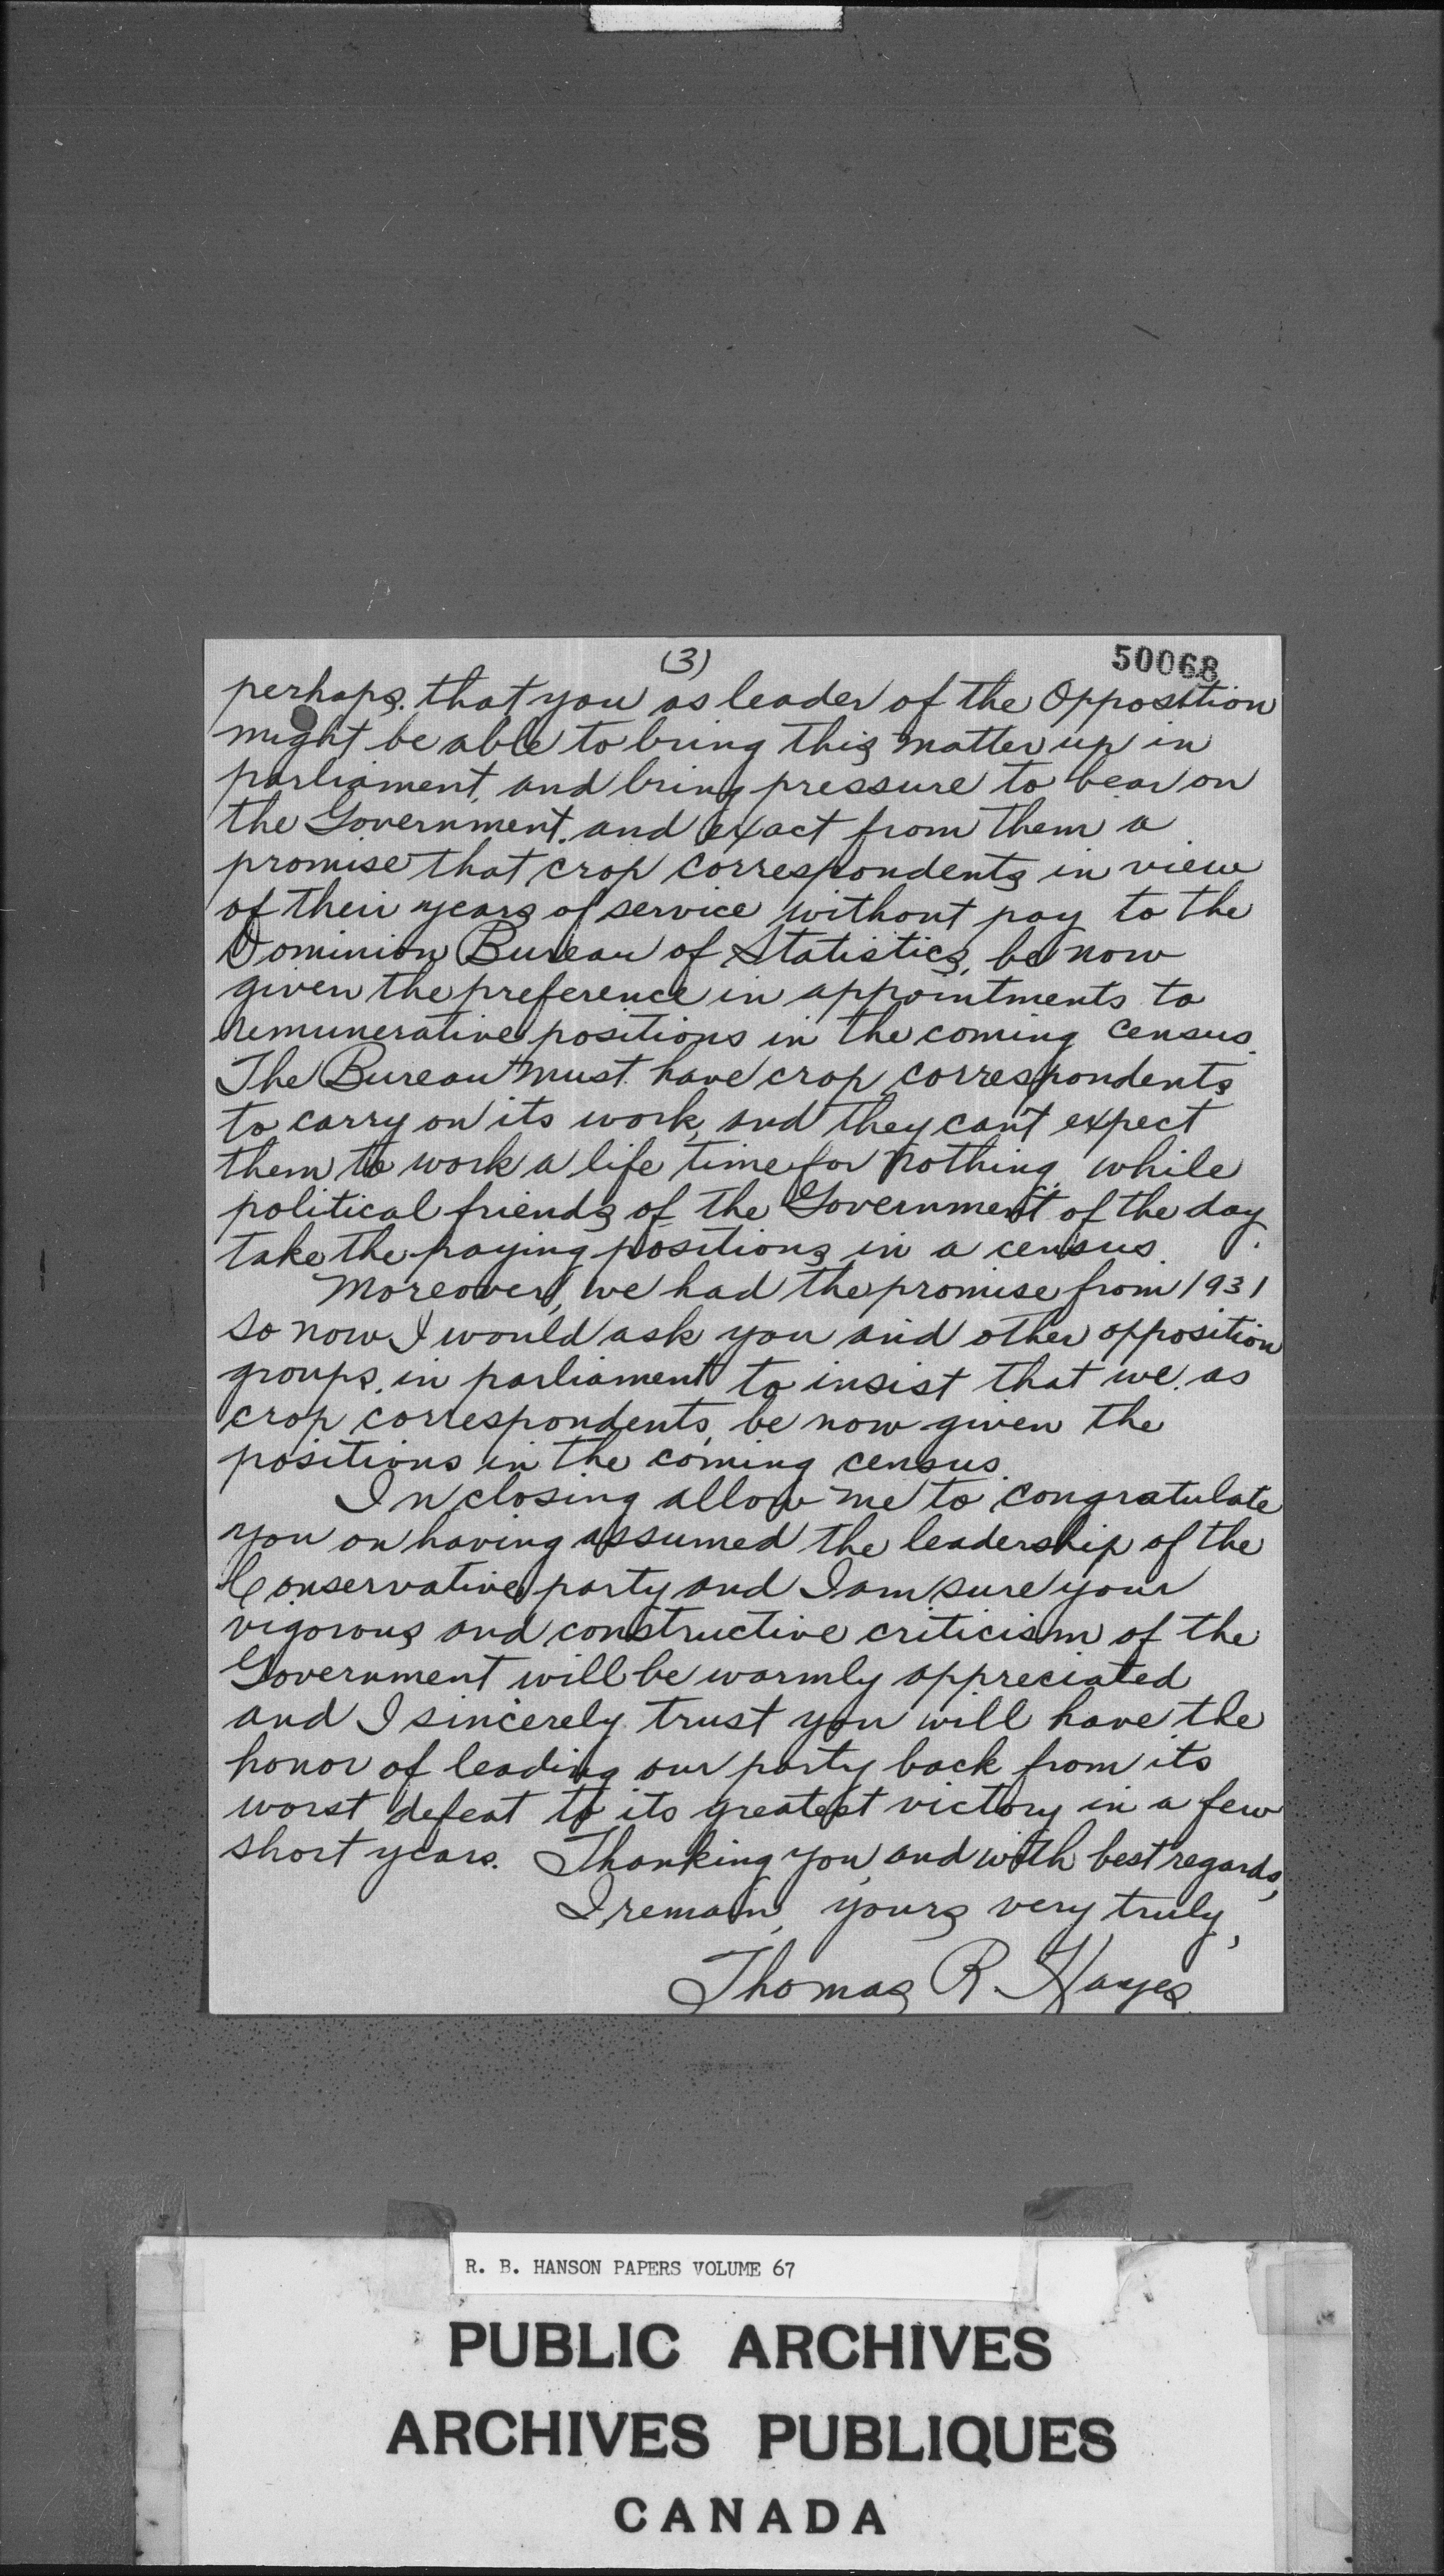 (3)
50068
perhaps. that you as leader of the Opposition
might be able to bring this matter up in
parliament, and bring pressure to bear on
the Government. and exact from them a
promise that crop correspondents in view
of their years of service without pay to the
Dominion Bureau of Statistics, be now
given the preference in appointments to
remunerative positions in the coming census.
The Bureau must have crop correspondents
to carry on its work, and they can't expect
them to work a life time for nothing while
political friends of the Government of the day
take the paying positions in a census.
Moreover, we had the promise from 1931
so now I would ask you and other opposition
groups, in parliament to insist that we as
crop correspondents, be now given the
positions in the coming census.
In closing allow me to congratulate
you on having assumed the leadership of the
Conservative party and I am sure your
vigorous and constructive criticism of the
Government will be warmly appreciated
and I sincerely trust you will have the
honor of leading our party back from its
worst defeat to its greatest victory in a few
short years. Thanking you, and with best regards,
I remain, yours very truly,
Thomas R. Hayes
R. B. HANSON PAPERS VOLUME 67
PUBLIC ARCHIVES
ARCHIVES PUBLIQUES
CANADA